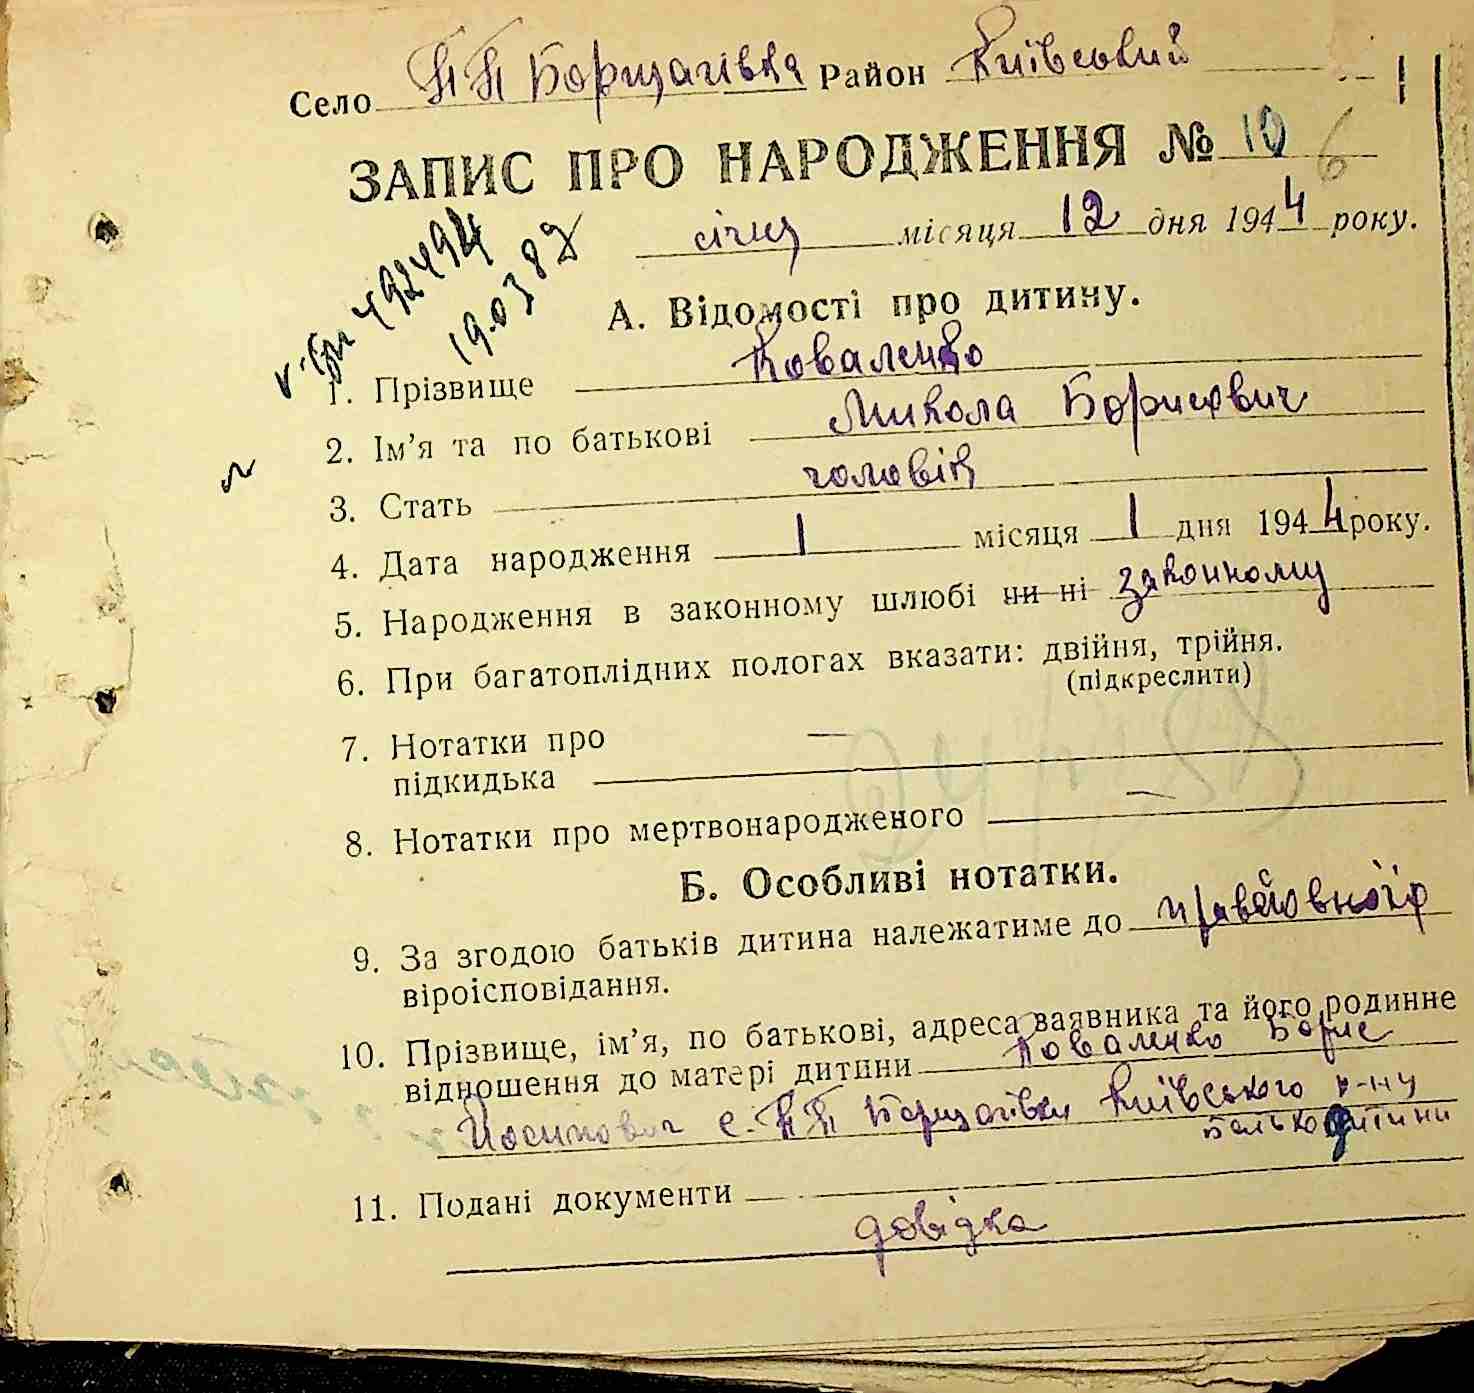 Село ПП Борщагівка Район Київський
ЗАПИС ПРО НАРОДЖЕННЯ № 10 6
січня місяця 12 дня 1944 року.
492494
19.03.82
А. Відомості про дитину.
1. Прізвище Коваленко
2. Ім'я та по батькові Микола Борисович
3. Стать чоловік
4. Дата народження 1 місяця 1 дня 1944 року.
5. Народження в законному шлюбі чи ні законному
6. При багатоплідних пологах вказати: двійня, трійня.
(підкреслити)
7. Нотатки про —
підкидька
8. Нотатки про мертвонародженого —
Б. Особливі нотатки.
9. За згодою батьків дитина належатиме до
віроісповідання.
10. Прізвище, ім'я, по батькові, адреса заявника та його родинне
відношення до матері дитини Коваленко Борис
с. ПП Борщагівка Київського р-ну
батько дитини
11. Подані документи
довідка